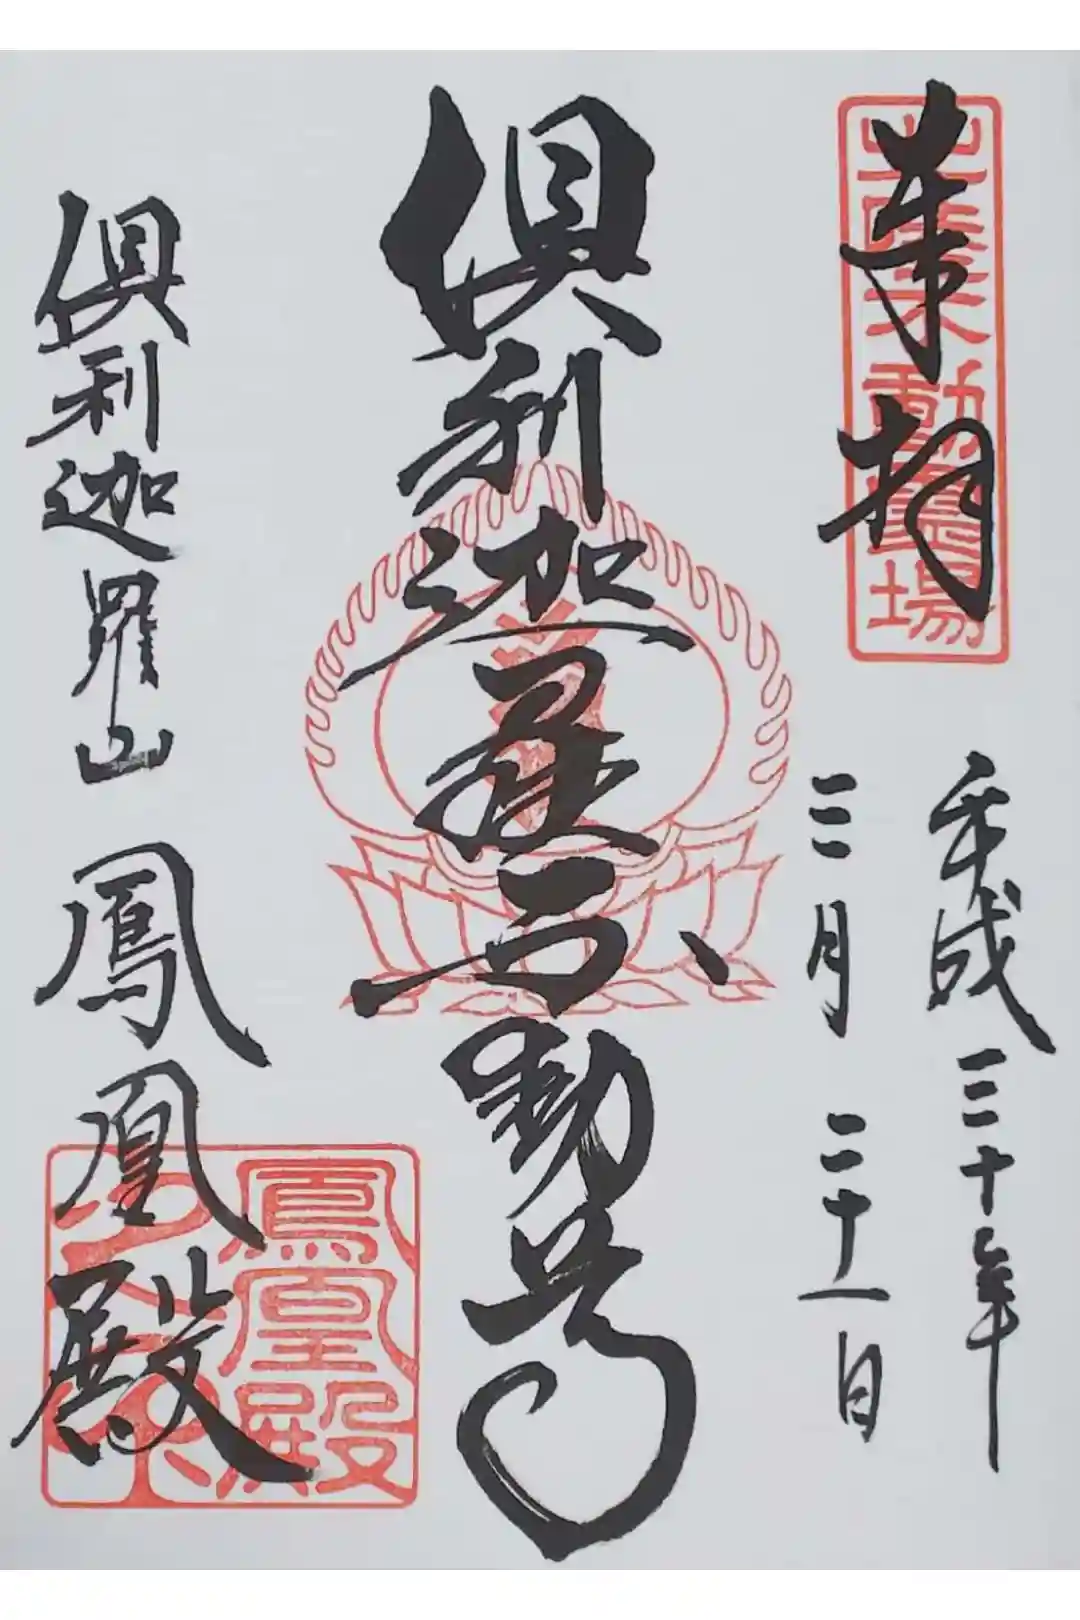 奉拝
北陸不動霊場
平成三十年
三月二十一日
俱利迦羅不動尊
俱利迦羅山
鳳凰殿
鳳凰殿